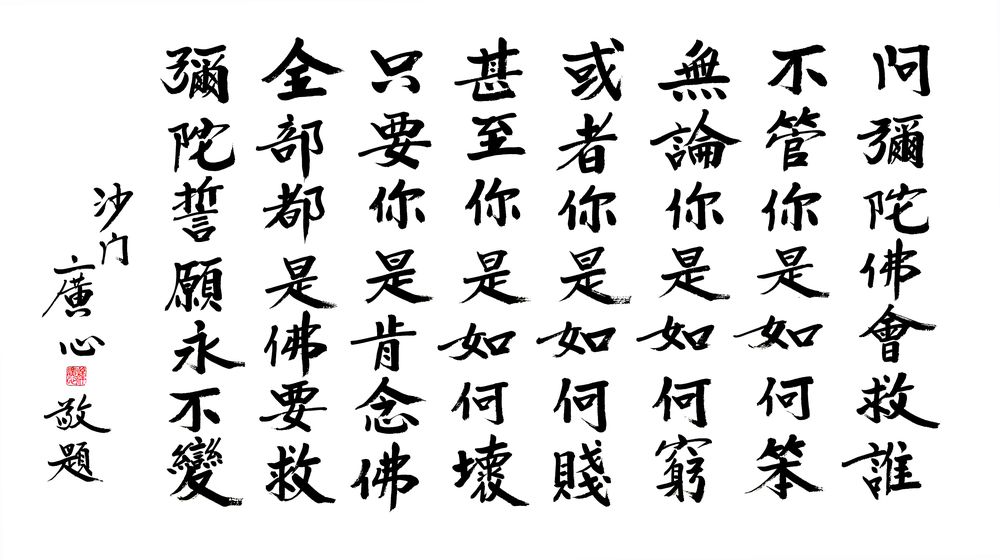 问彌陀佛會救誰
不管你是如何笨
無論你是如何窮
或者你是如何賤
甚至你是如何壞
只要你是肯念佛
全部都是佛要救
彌陀誓願永不變
沙门
廣心
敬題